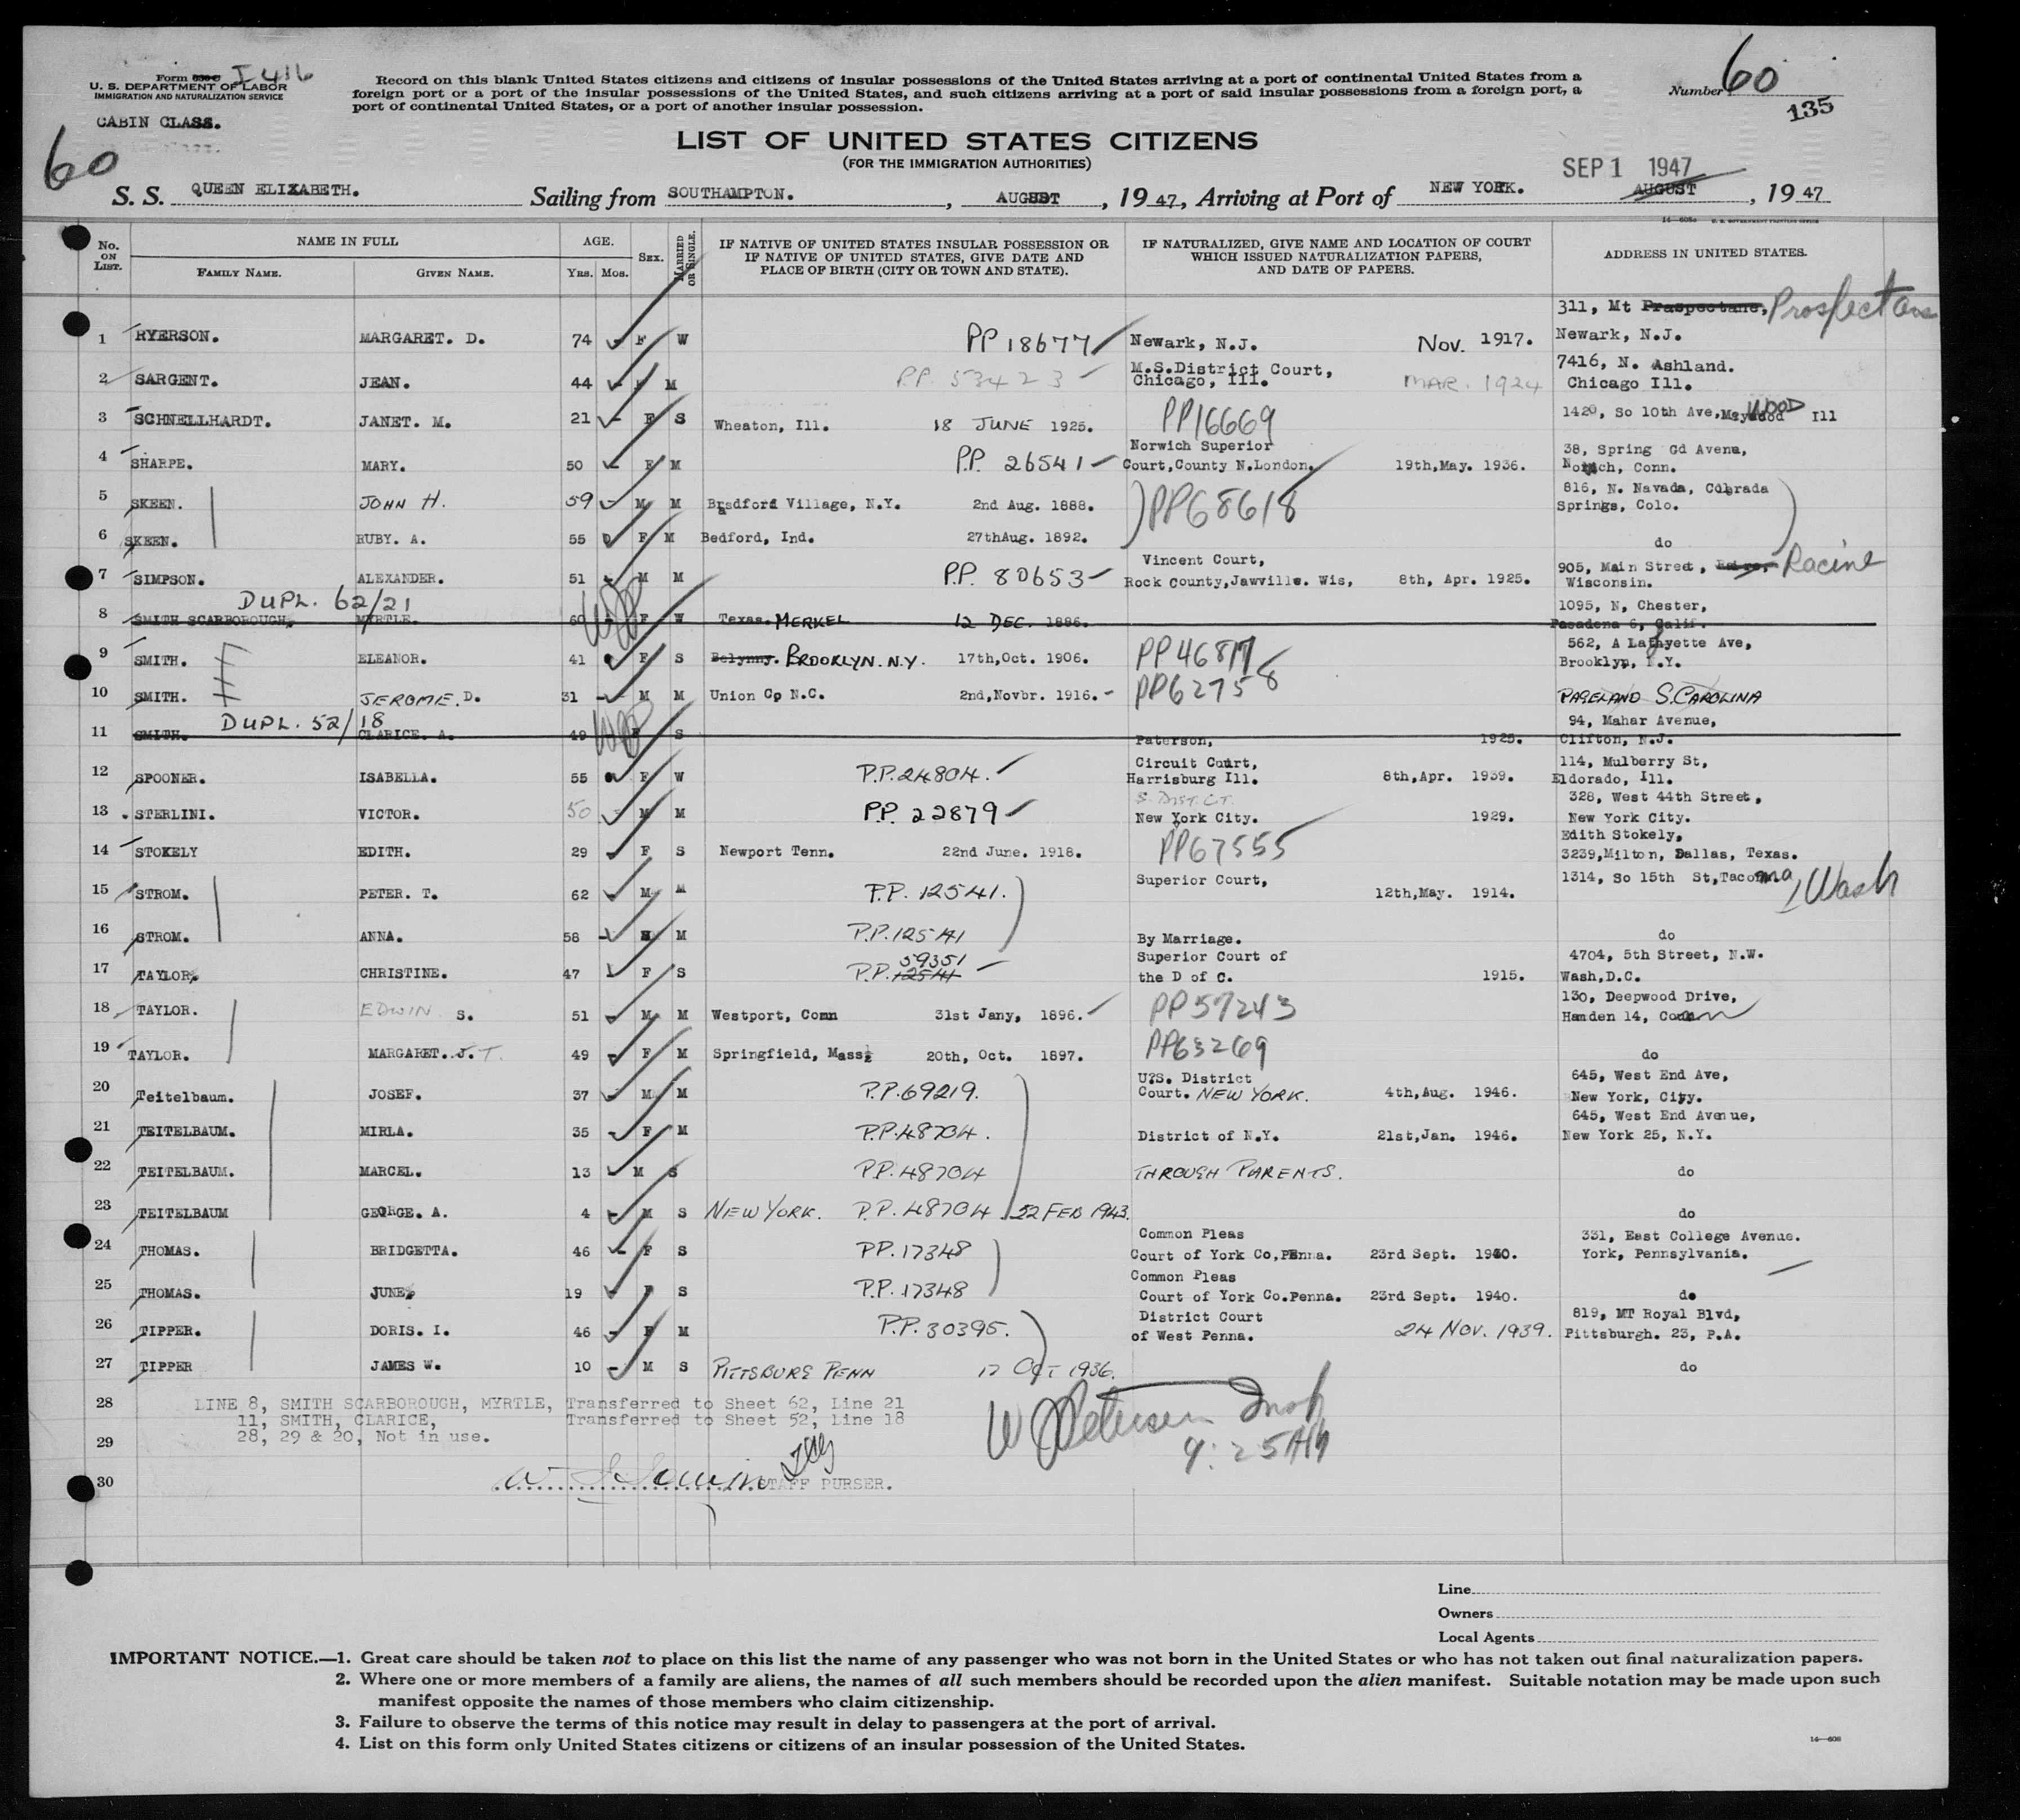 Form I 416
U. S. DEPARTMENT OF LABOR
IMMIGRATION AND NATURALIZATION SERVICE
CABIN CLASS.
60
Record on this blank United States citizens and citizens of insular possessions of the United States arriving at a port of continental United States from a
foreign port or a port of the insular possessions of the United States, and such citizens arriving at a port of said insular possessions from a foreign port, a
port of continental United States, or a port of another insular possession.
Number 60
135
LIST OF UNITED STATES CITIZENS
(FOR THE IMMIGRATION AUTHORITIES)
SEP 1 1947
S. S. QUEEN ELIZABETH. Sailing from SOUTHAMPTON. , AUGUST , 19 47, Arriving at Port of NEW YORK. AUGUST , 19 47
14—608a U. S. GOVERNMENT PRINTING OFFICE
No. ON LIST. NAME IN FULL AGE. SEX. MARRIED OR SINGLE. IF NATIVE OF UNITED STATES INSULAR POSSESSION OR IF NATIVE OF UNITED STATES, GIVE DATE AND PLACE OF BIRTH (CITY OR TOWN AND STATE). IF NATURALIZED, GIVE NAME AND LOCATION OF COURT WHICH ISSUED NATURALIZATION PAPERS, AND DATE OF PAPERS. ADDRESS IN UNITED STATES.
FAMILY NAME. GIVEN NAME. YRS. MOS.
311, Mt Praspectane, Prospect Ave
1 RYERSON. MARGARET. D. 74 F W PP 18677 Newark, N.J. Nov. 1917. Newark, N.J.
M.S.District Court, 7416, N. Ashland.
2 SARGENT. JEAN. 44 M P.P. 53423 Chicago, Ill. MAR. 1924 Chicago Ill.
3 SCHNELLHARDT. JANET. M. 21 F S Wheaton, Ill. 18 JUNE 1925. PP16669 1420, So 10th Ave, Maywood WOOD Ill
Norwich Superior 38, Spring Gd Avena,
4 SHARPE. MARY. 50 F M P.P. 26541 Court,County N.London. 19th,May. 1936. Norwich, Conn.
816, N. Navada, Colorada
5 SKEEN. JOHN H. 59 M M Bradford Village, N.Y. 2nd Aug. 1888. PP68618 Springs, Colo.
6 SKEEN. RUBY. A. 55 F M Bedford, Ind. 27thAug. 1892. do
Vincent Court, 905, Main Street, Racine
7 SIMPSON. ALEXANDER. 51 M M P.P. 80653 Rock County,Jawville. Wis, 8th, Apr. 1925. Wisconsin.
DUPL. 62/21 1095, N, Chester,
8 SMITH SCARBOROUGH. MYRTLE. 60 F W Texas. MERKEL 12 DEC. 1886. Pasadena 6, Calif.
562, A Lafayette Ave,
9 SMITH. ELEANOR. 41 F S Belynny. BROOKLYN. N.Y. 17th,Oct. 1906. PP46817 Brooklyn, N.Y.
10 SMITH. JEROME. D. 31 M M Union Co N.C. 2nd,Novbr. 1916. PP62758 PAGELAND S. CAROLINA
DUPL. 52/18 94, Mahar Avenue,
11 SMITH. CLARICE. A. 49 F S Paterson, 1925. Clifton, N.J.
Circuit Court, 114, Mulberry St,
12 SPOONER. ISABELLA. 55 F W P.P. 24804. Harrisburg Ill. 8th,Apr. 1939. Eldorado, Ill.
S. DIST. CT. 328, West 44th Street,
13 STERLINI. VICTOR. 50 M M P.P. 22879 New York City. 1929. New York City.
Edith Stokely,
14 STOKELY EDITH. 29 F S Newport Tenn. 22nd June. 1918. PP67555 3239,Milton, Dallas, Texas.
15 STROM. PETER. T. 62 M M P.P. 12541. Superior Court, 12th,May. 1914. 1314, So 15th St,Tacoma, Wash
16 STROM. ANNA. 58 M P.P.12541 By Marriage. do
59351 Superior Court of 4704, 5th Street, N.W.
17 TAYLOR. CHRISTINE. 47 F S P.P. 12541 the D of C. 1915. Wash,D.C.
130, Deepwood Drive,
18 TAYLOR. EDWIN S. 51 M M Westport, Conn 31st Jany, 1896. PP57243 Hamden 14, Conn
19 TAYLOR. MARGARET. J. T. 49 F M Springfield, Mass. 20th, Oct. 1897. PP63269 do
U.S. District 645, West End Ave,
20 Teitelbaum. JOSEF. 37 M M P.P.69219. Court. NEW YORK. 4th,Aug. 1946. New York, City.
645, West End Avenue,
21 TEITELBAUM. MIRLA. 35 F M P.P.48704. District of N.Y. 21st,Jan. 1946. New York 25, N.Y.
22 TEITELBAUM. MARCEL. 13 M S P.P. 48704 THROUGH PARENTS. do
23 TEITELBAUM GEORGE. A. 4 M S NEW YORK. P.P. 48704 22 FEB 1943. do
Common Pleas 331, East College Avenue.
24 THOMAS. BRIDGETTA. 46 F S PP.17348 Court of York Co,Penna. 23rd Sept. 1940. York, Pennsylvania.
Common Pleas
25 THOMAS. JUNE. 19 F S P.P. 17348 Court of York Co.Penna. 23rd Sept. 1940. do
District Court 819, MT Royal Blvd,
26 TIPPER. DORIS. I. 46 F M P.P. 30395. of West Penna. 24 NOV. 1939. Pittsburgh. 23, P.A.
27 TIPPER JAMES W. 10 M S PITTSBURG PENN 17 OCT 1936. do
28 LINE 8, SMITH SCARBOROUGH, MYRTLE, Transferred to Sheet 62, Line 21
11, SMITH, CLARICE, Transferred to Sheet 52, Line 18
28, 29 & 20, Not in use.
29
W Petersen Insp
9:25 AM
30 STAFF PURSER.
Line
Owners
Local Agents
IMPORTANT NOTICE.—1. Great care should be taken not to place on this list the name of any passenger who was not born in the United States or who has not taken out final naturalization papers.
2. Where one or more members of a family are aliens, the names of all such members should be recorded upon the alien manifest. Suitable notation may be made upon such
manifest opposite the names of those members who claim citizenship.
3. Failure to observe the terms of this notice may result in delay to passengers at the port of arrival.
4. List on this form only United States citizens or citizens of an insular possession of the United States.
14—608